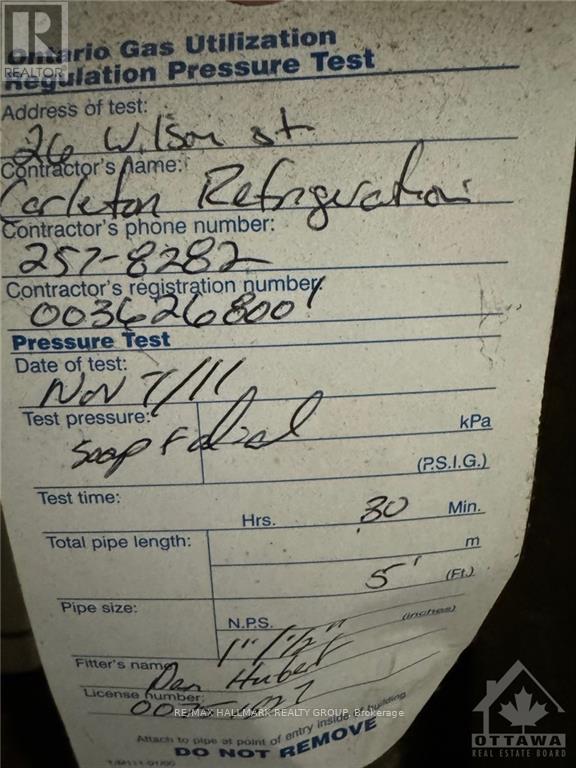 REALTOR
Ontario Gas Utilization
Regulation Pressure Test
Address of test:
26 Wilson st
Contractor's name:
Carleton Refrigeration
Contractor's phone number:
257-8282
Contractor's registration number:
0036268001
Pressure Test
Date of test:
Nov 7/11
Test pressure:
kPa
Soap &
(P.S.I.G.)
Test time:
Hrs. 30 Min.
Total pipe length:
m
5' (Ft.)
Pipe size:
N.P.S.
1" 1/2" (inches)
Fitter's name
Dan Hubert
License number:
RE/MAX HALLMARK REALTY GROUP, Brokerage
Attach to pipe at point of entry inside of building
DO NOT REMOVE
OTTAWA
REAL ESTATE BOARD